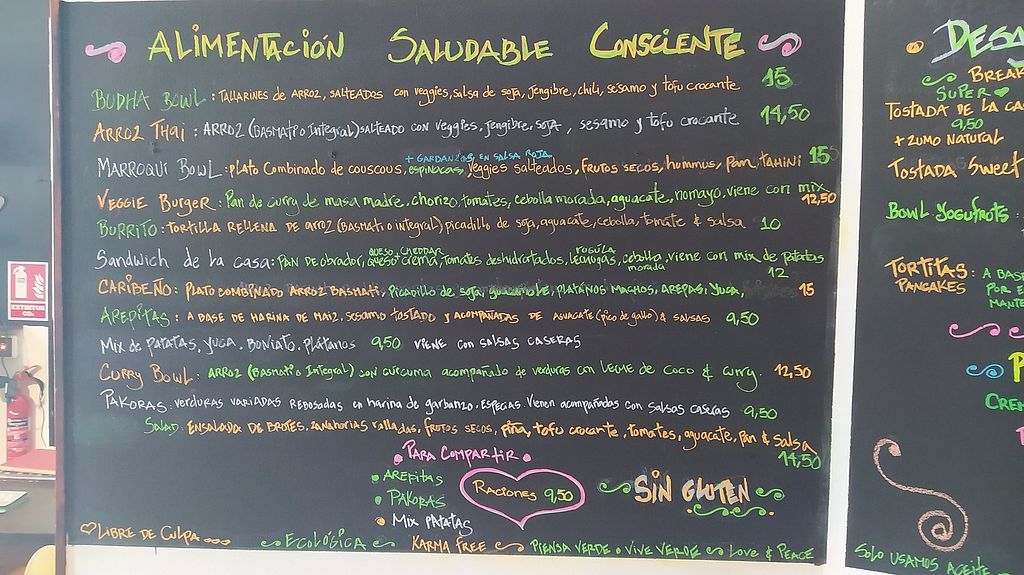 ALIMENTACIÓN SALUDABLE CONSCIENTE
BUDHA BOWL: TALLARINES de ARROZ, SALTEADOS con veggies, salsa de soja, jengibre, chili, sesamo y tofu crocante 15
ARROZ THAI: ARROZ (BASMATI o Integral) SALTEADO CON veggies, jengibre, SOJA, sesamo y tofu crocante 14,50
+ GARBANZOS EN SALSA ROJA
MARROQUI BOWL: PLATO Combinado de couscous, espinacas, veggies salteados, FRUTOS SECOS, hummus, pan, TAHINI 15
VEGGIE BURGER: Pan de curry de masa madre, chorizo, tomates, cebolla morada, aguacate, nomayo, viene con mix 12,50
BURRITO: TORTILLA RELLENA DE arroz (Basmati o integral) picadillo de soja, aguacate, cebolla, tomate & salsa 10
QUESO CHEDDAR rogula
Sandwich de la casa: PAN DE obrador, queso crema, tomates deshidratados, lechugas, cebolla, viene con mix de patatas
morada 12
CARIBEÑO: PLATO COMBINADO ARROZ BASMATI, Picadillo de soja, guacamole, PLATANOS MACHOS, AREPAS, yuca, 15
AREPITAS: A BASE DE HARINA DE MAIZ, sesamo TOSTADO y ACOMPAÑADAS DE AGUACATE (pico de gallo) & SALSAS 9,50
Mix de PATATAS, yuca, BONIATO, Plátanos 9,50 VIENE con SALSAS CASERAS
CURRY BOWL: ARROZ (Basmati o Integral) con curcuma acompañado de verduras con LECHE de COCO & curry. 12,50
PAKORAS: verduras VARIADAS REBOSADAS en harina de garbanzo, especias. Vienen acompañadas con salsas caseras 9,50
SALAD: ENSALADA DE BROTES, ZANAHORIAS ralladas, frutos secos, piña, tofu crocante, tomates, aguacate, pan & salsa
14,50
PARA COMPARTIR
AREPITAS
PAKORAS
Mix PATATAS
RACIONES 9,50
SIN GLUTEN
LIBRE DE CULPA
ECOLÓGICA
KARMA FREE
PIENSA VERDE O VIVE VERDE
LOVE & PEACE
DESA
BREAK
SUPER
TOSTADA DE LA CA
9,50
+ ZUMO NATURAL
TOSTADA Sweet
BOWL YOGUFRUTS:
TORTITAS: A BASE
PANCAKES POR E
MANTE
P
CREM
SOLO USAMOS ACEITE